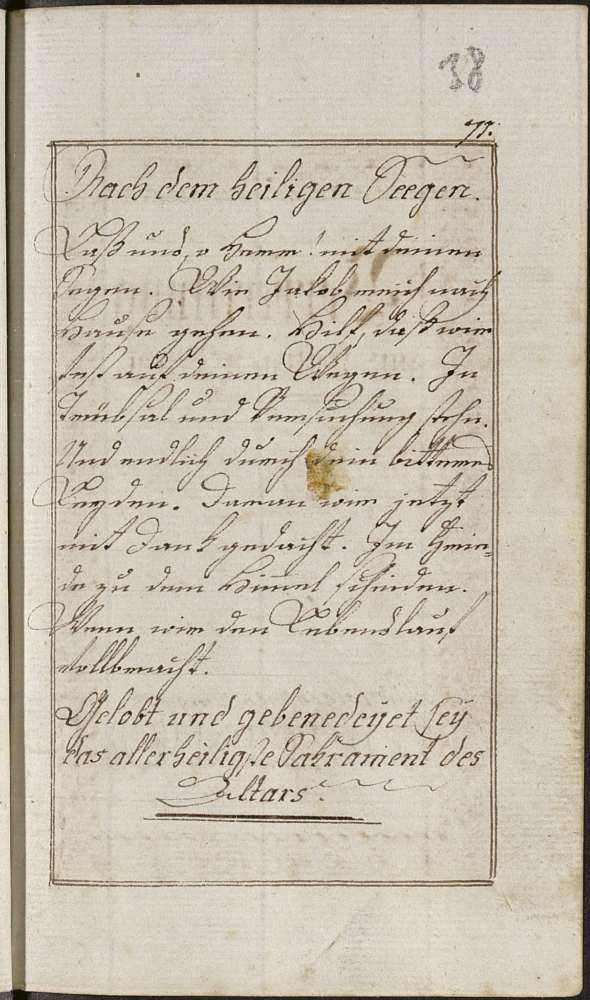 38
77.
Nach dem heiligen Seegen.
Laß uns, o Herr! mit deinem
Segen. Wie Jakob, nach
Hause gehen. Hilf, daß wir
fest auf deinen Wegen. In
Trübsal und Versuchung stehn.
Und endlich durch dein bitteres
Leyden. Daran wir jetzt
mit Dank gedacht. Im Frie-
de zu dem Himel scheiden.
Wenn wir den Lebenslauf
vollbracht.
Gelobt und gebenedeyet sey
das allerheiligste Sakrament des
Altars.